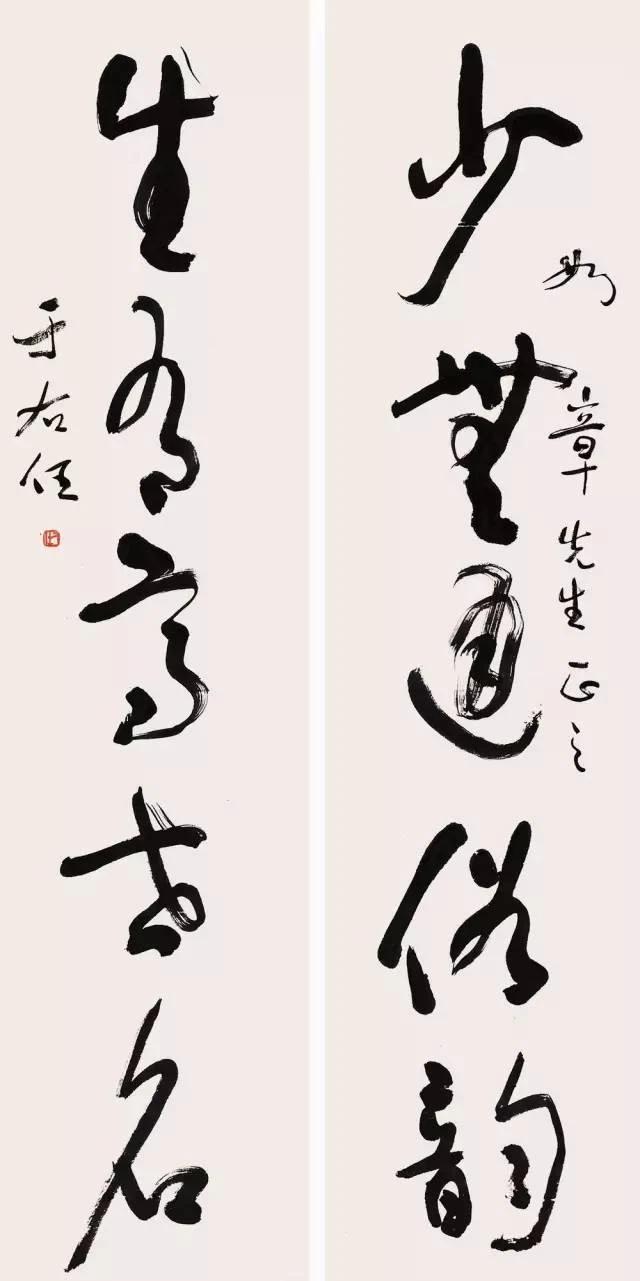 少無適俗韻
章先生正之
生有高世名
于右任